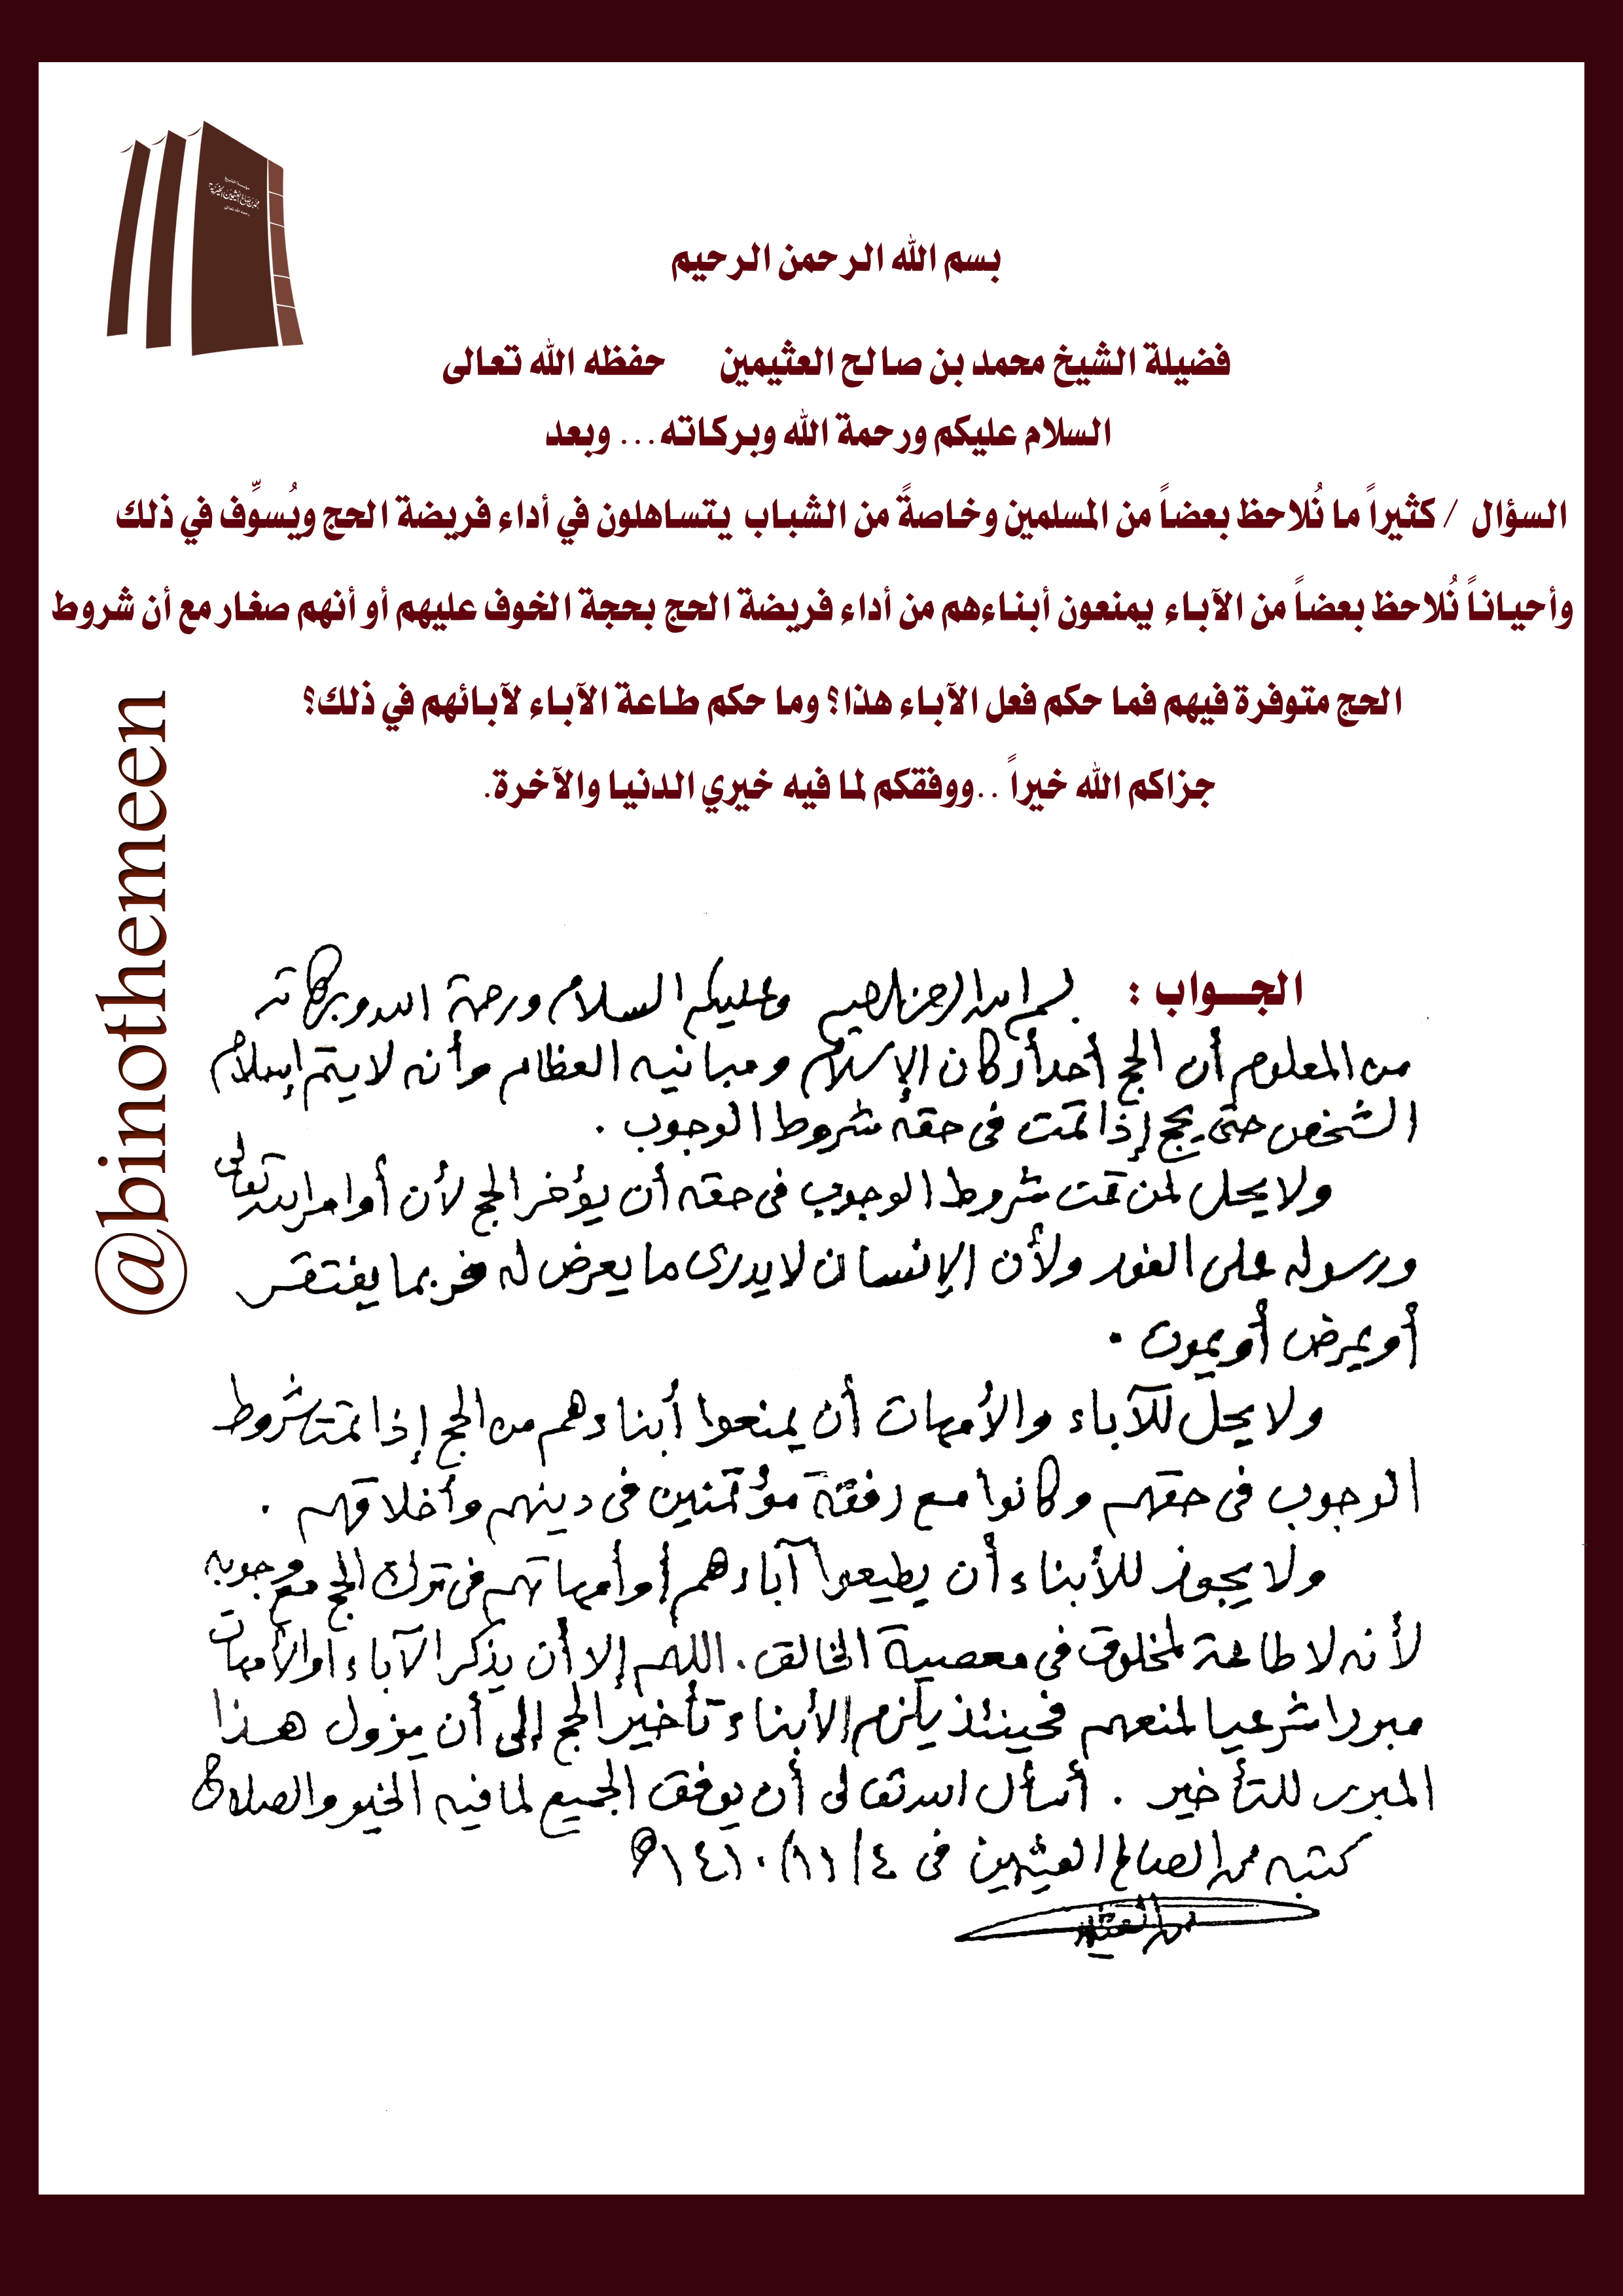 مؤسسة الشيخ
محمد بن صالح العثيمين الخيرية
رحمه الله تعالى
بسم الله الرحمن الرحيم
فضيلة الشيخ محمد بن صالح العثيمين حفظه الله تعالى
السلام عليكم ورحمة الله وبركاته... وبعد
السؤال / كثيراً ما نُلاحظ بعضاً من المسلمين وخاصةً من الشباب يتساهلون في أداء فريضة الحج ويُسوِّف في ذلك
وأحياناً نُلاحظ بعضاً من الآباء يمنعون أبناءهم من أداء فريضة الحج بحجة الخوف عليهم أو أنهم صغار مع أن شروط
الحج متوفرة فيهم فما حكم فعل الآباء هذا؟ وما حكم طاعة الآباء لآبائهم في ذلك؟
جزاكم الله خيراً ..ووفقكم لما فيه خيري الدنيا والآخرة.
@binothemeen
الجـــواب : بسم الله الرحمن الرحيم وعليكم السلام ورحمة الله وبركاته
من المعلوم أن الحج أحد أركان الإسلام ومبانيه العظام وأنه لا يتم إسلام
الشخص حتى يحج إذا تمت في حقه شروط الوجوب .
ولا يحل لمن تمت شروط الوجوب في حقه أن يؤخر الحج لأن أوامر الله تعالى
ورسوله على الفور ولأن الإنسان لا يدرى ما يعرض له فربما يفتقر
أو يمرض أو يموت .
ولا يحل للآباء والأمهات أن يمنعوا أبناءهم من الحج إذا تمت شروط
الوجوب في حقهم وكانوا مع رفقة مؤتمنين في دينهم وأخلاقهم .
ولا يجوز للأبناء أن يطيعوا آباءهم أو أمهاتهم في ترك الحج مع وجوبه
لأنه لا طاعة لمخلوق في معصية الخالق . اللهم إلا أن يذكر الآباء أو الأمهات
مبررا شرعيا لمنعهم فحينئذ يلزم الأبناء تأخير الحج إلى أن يزول هذا
المبرر للتأخير . أسأل الله تعالى أن يوفق الجميع لما فيه الخير والصلاح
كتبه محمد الصالح العثيمين في ٤/١١/١٤١٠هـ
محمد العثيمين